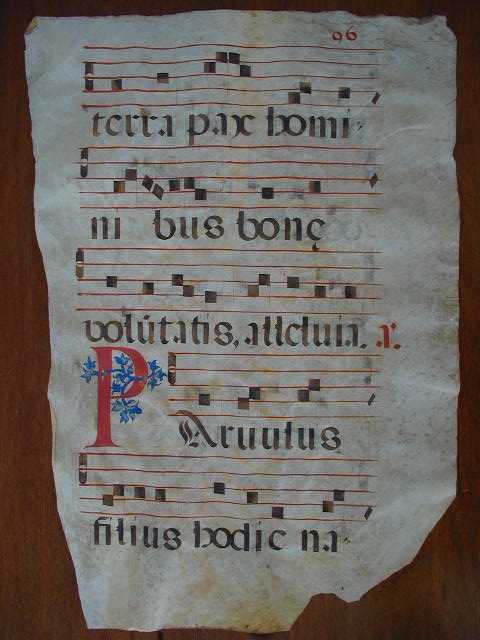 96
terra pax homi-
ni bus bonę
volútatis, alleluia. a.
PARuulus
filius hodie na-